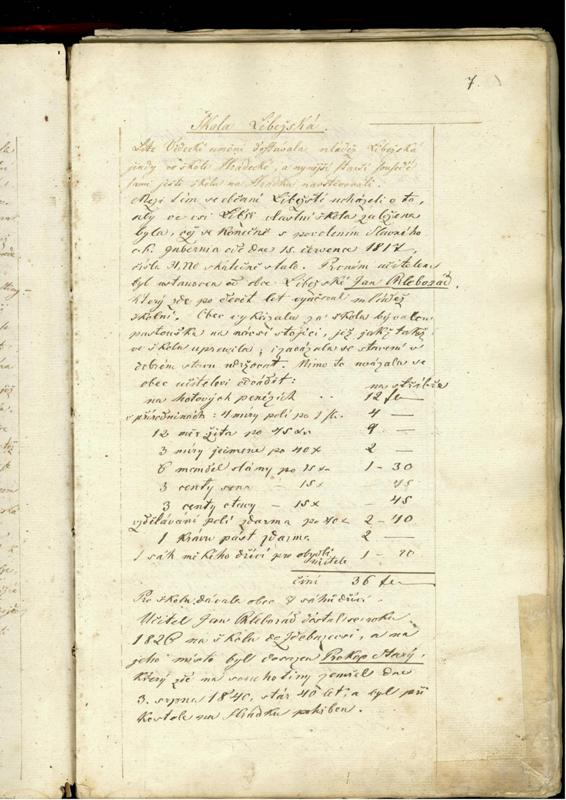 7.
Škola Libějská.
umění dostávala mládež Libějská
jindy ve škole Hradecké, a nynější starší sousedé
sami ještě školu na Hrádku navštěvovali.
Mezi tím se občané Libějští ucházeli o to,
aby ve vsi Liběji vlastní škola založena
byla, což se konečně s povolením Slavného
c.k. Gubernia ode dne 15. července 1817,
číslo skutečně stalo. Prvním učitelem
byl ustanoven od obce Libějské Jan Chleborád,
který zde po devět let vyučoval mládež
školní. Obec vykázala za školu bývalou
pastoušku na návsi stojící, jež jakž takž
ve školu upravila, i zavázala se stavení v
dobrém stavu udržovat. Mimo to uvázala se
obec učiteli odvádět: na stříbře
na hotových penězích . . 12 fr —
v přirozeninách: 4 míry polí po 1 fr. 4 —
12 měr žita po 45 x 9 —
3 míry ječmene po 40 x 2 —
6 mandel slámy po 15 x 1 - 30
3 centy sena — 15 x 45
3 centy otavy — 15 x 45
vzdělávání polí zdarma po 40 x 2 - 40
1 krávu pást zdarma 2 —
1 sáh měkého dříví pro obydlí učitele 1 - 20
činí 36 fr —
Pro školu dávala obec sáhů dříví.
Učitel Jan Chleborád dostal se roku
1826 na školu do, a na
jeho místo byl dosazen Prokop Starý,
který zde na souchotiny zemřel dne
3. srpna 1840, stár 40 let, a byl při
kostele na Hrádku pohřben.